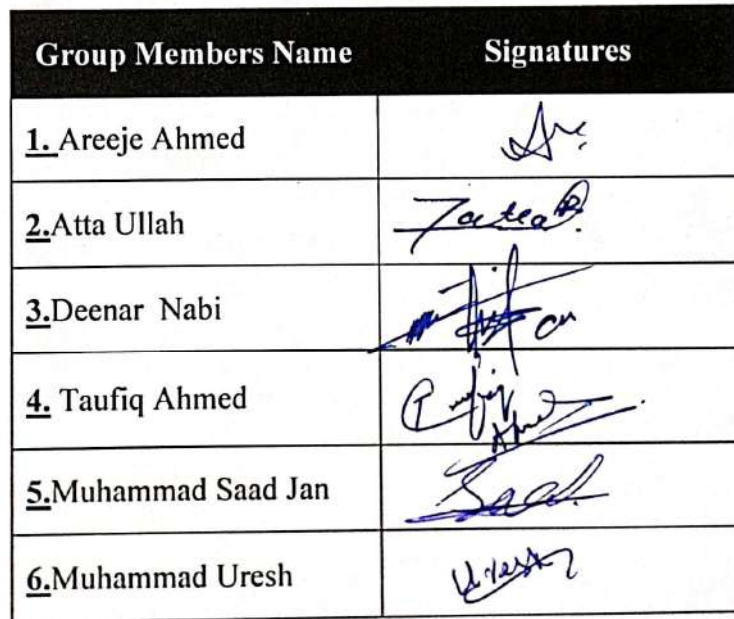 Group Members Name Signatures
1. Areeje Ahmed
2.Atta Ullah
3.Deenar Nabi
4. Taufiq Ahmed Taufiq Ahmed
5.Muhammad Saad Jan Saad
6.Muhammad Uresh Uresh